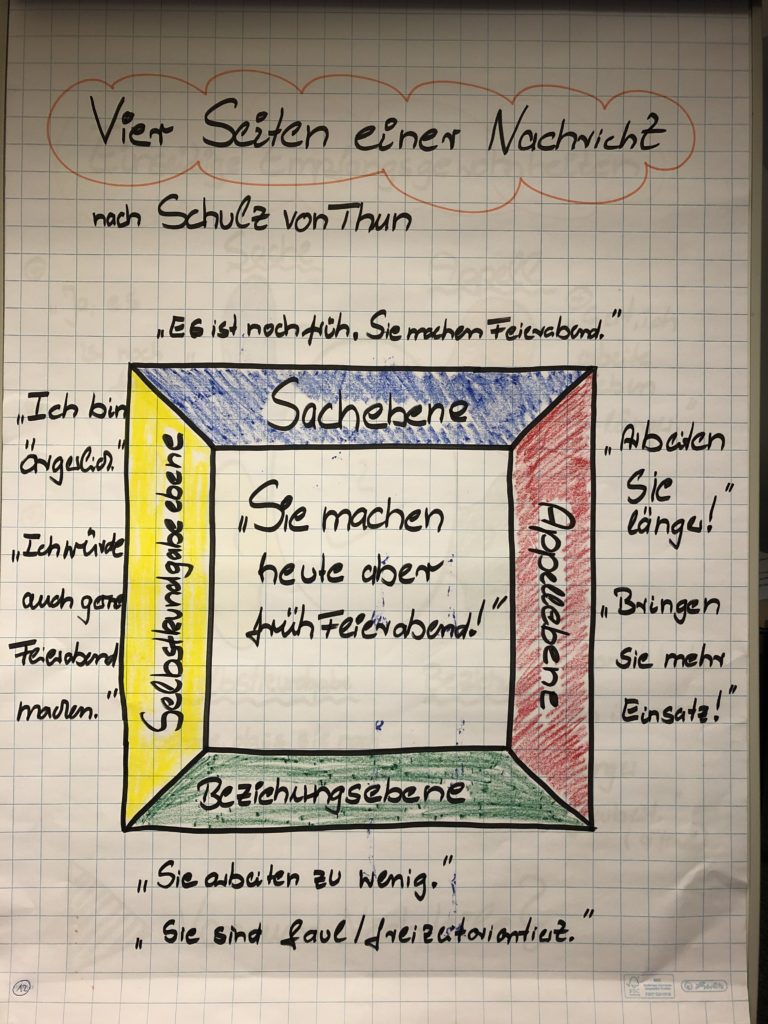 Vier Seiten einer Nachricht
nach Schulz von Thun
„Es ist noch früh, Sie machen Feierabend."
Sachebene
„Ich bin
ärgerlich."
„Ich würde
auch gern
Feierabend
machen."
Selbstkundgabeebene
„Sie machen
heute aber
früh Feierabend!"
Appellebene
„Arbeiten
Sie
länger!"
„Bringen
Sie mehr
Einsatz!"
Beziehungsebene
„Sie arbeiten zu wenig."
„Sie sind faul/freizeitorientiert."
FSC